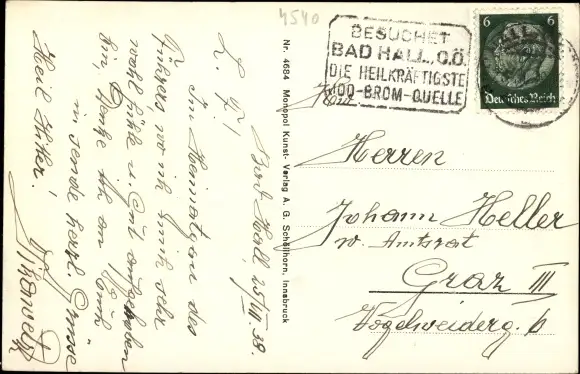 4540
BESUCHET
BAD HALL, O.Ö.
DIE HEILKRÄFTIGSTE
JOD-BROM-QUELLE
6 6
Deutsches Reich
Nr. 4684 Monopol Kunst-Verlag A. G. Schöllhorn, Innsbruck
Bad Hall, 25/VII. 38.
L. F.!
Im Heimatgau des
Führers, wo ich mich sehr
wohl fühle u. gut aufgehoben
bin, denke ich an Euch
u. sende herzl. Grüsse
Heil Hitler!
Herren
Johann Heller
w. Amtsrat
Graz III
Vogelweiderg. 6